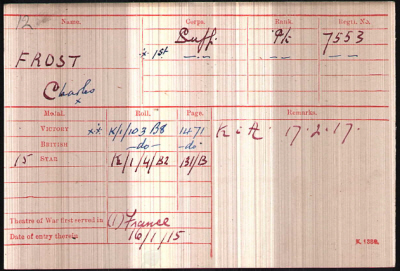 12 Name. Corps. Rank. Regtl. No.
FROST * 1st Suff. Pte 7553
Charles
Medal. Roll. Page. Remarks.
VICTORY ** K/1/103 B8 1471 K in A. 17.2.17.
BRITISH -do- -do-
15 STAR K/1/4/B2 131/B
Theatre of War first served in (1) France
Date of entry therein 16/1/15
K. 1380.